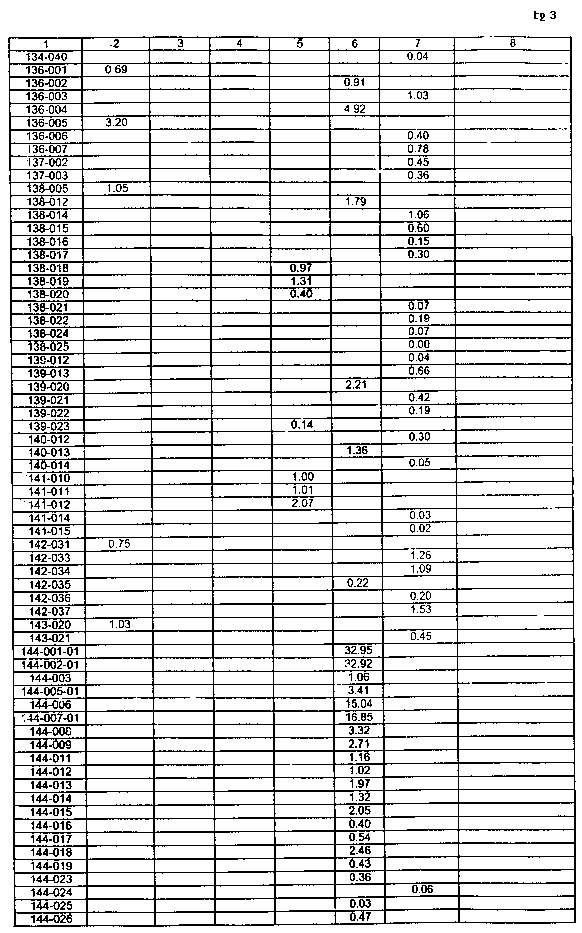 tg 3
1 2 3 4 5 6 7 8
134-040 0.04
136-001 0.69
136-002 0.91
136-003 1.03
136-004 4.92
136-005 3.20
136-006 0.40
136-007 0.78
137-002 0.45
137-003 0.36
138-005 1.05
138-012 1.79
138-014 1.06
138-015 0.60
138-016 0.15
138-017 0.30
138-018 0.97
138-019 1.31
138-020 0.40
138-021 0.07
138-022 0.19
138-024 0.07
138-025 0.00
139-012 0.04
139-013 0.66
139-020 2.21
139-021 0.42
139-022 0.19
139-023 0.14
140-012 0.30
140-013 1.36
140-014 0.05
141-010 1.00
141-011 1.01
141-012 2.07
141-014 0.03
141-015 0.02
142-031 0.75
142-033 1.26
142-034 1.09
142-035 0.22
142-036 0.20
142-037 1.53
143-020 1.03
143-021 0.45
144-001-01 32.95
144-002-01 32.92
144-003 1.06
144-005-01 3.41
144-006 15.04
144-007-01 16.85
144-008 3.32
144-009 2.71
144-011 1.16
144-012 1.02
144-013 1.97
144-014 1.32
144-015 2.05
144-016 0.40
144-017 0.54
144-018 2.46
144-019 0.43
144-023 0.36
144-024 0.06
144-025 0.03
144-026 0.47